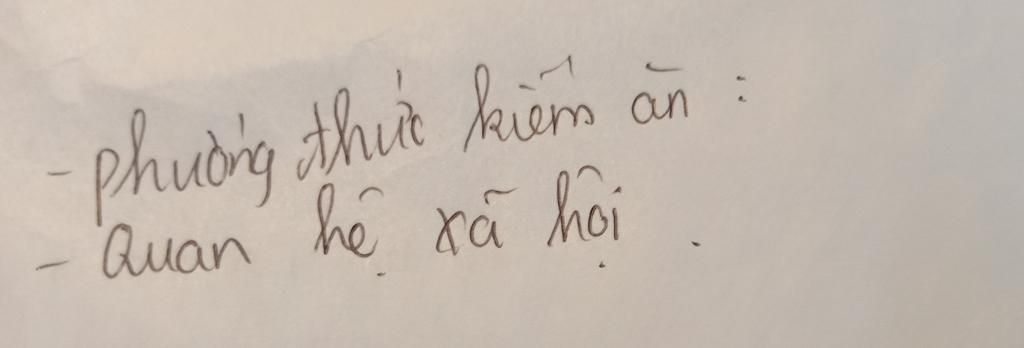 - phường thức kiếm ăn :
- Quan hệ xã hội .